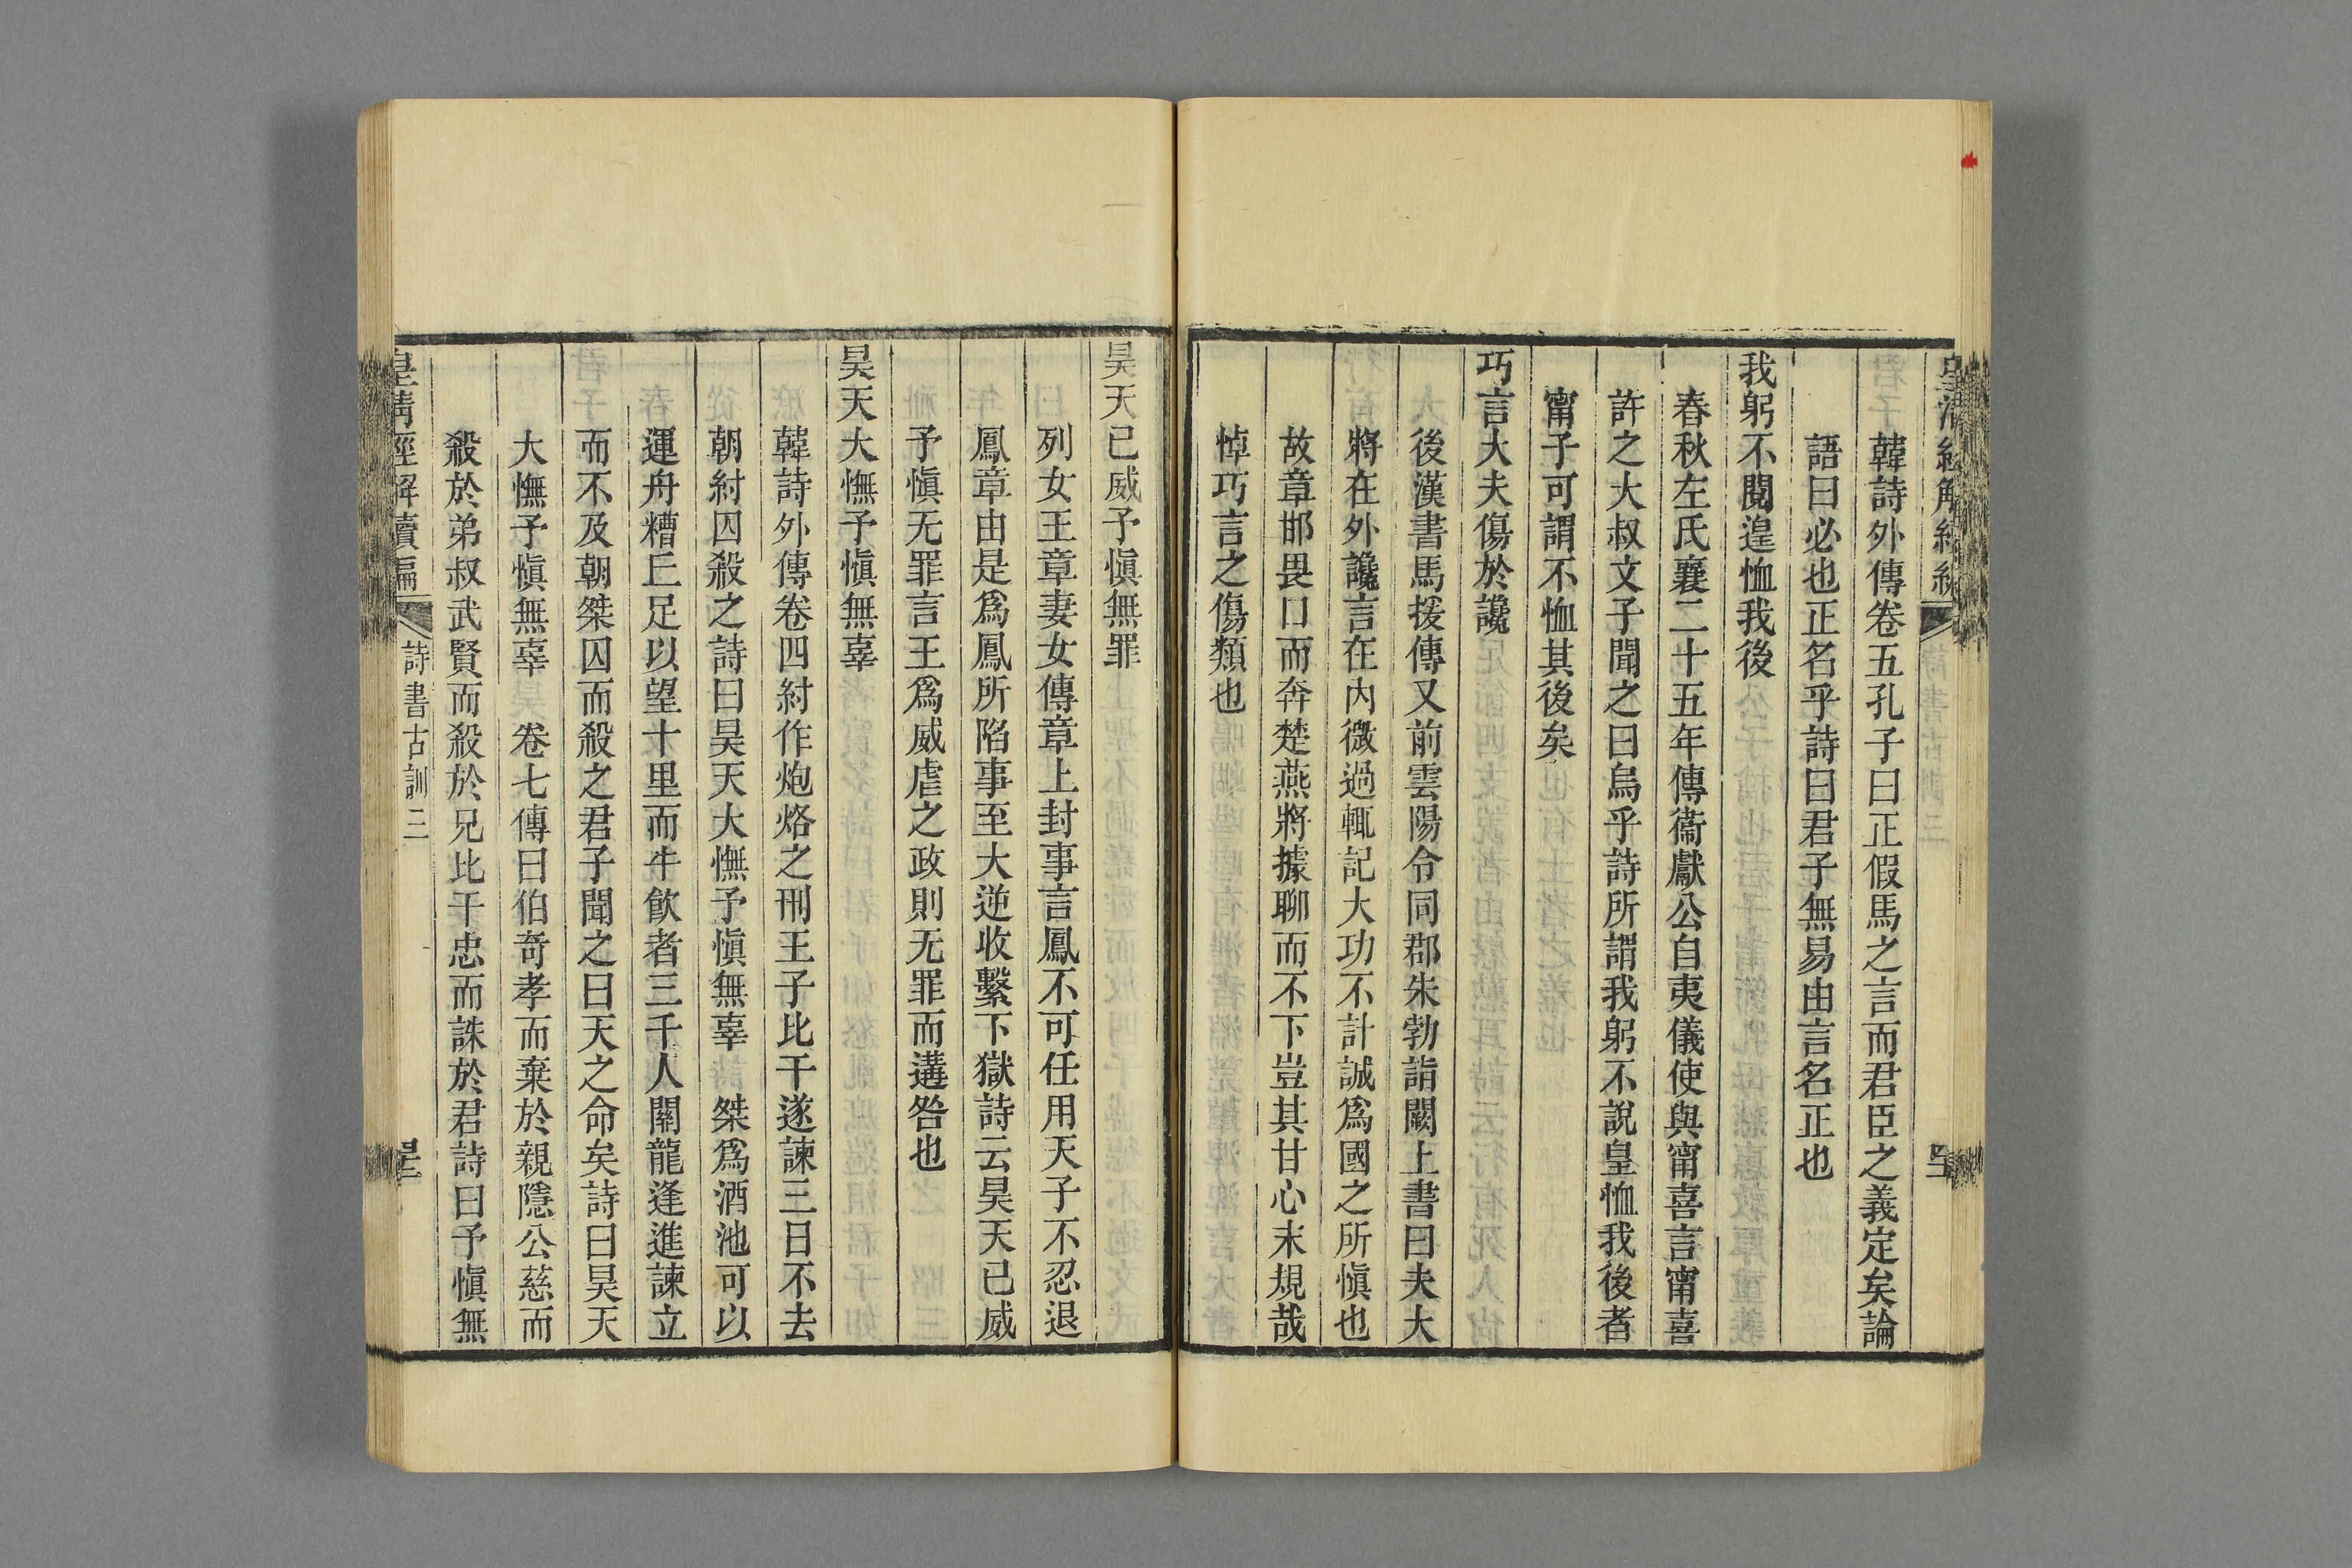 韓詩外傳卷五孔子曰正假馬之言而君臣之義定矣論
語曰必也正名乎詩曰君子無易由言名正也
我躬不閱遑恤我後
春秋左氏襄二十五年傳衞獻公自夷儀使與甯喜言甯喜
許之大叔文子聞之曰烏乎詩所謂我躬不說皇恤我後者
甯子可謂不恤其後矣
巧言大夫傷於讒
後漢書馬援傳又前雲陽令同郡朱勃詣闕上書曰夫大
將在外讒言在內微過輒記大功不計誠爲國之所愼也
故章邯畏口而奔楚燕將據聊而不下豈其甘心末規哉
悼巧言之傷類也
昊天已威予愼無罪
列女王章妻女傳章上封事言鳳不可任用天子不忍退
鳳章由是爲鳳所陷事至大逆收繫下獄詩云昊天已威
予愼无罪言王爲威虐之政則无罪而遘咎也
昊天大憮予愼無辜
韓詩外傳卷四紂作炮烙之刑王子比干遂諫三日不去
朝紂囚殺之詩曰昊天大憮予愼無辜 桀爲酒池可以
運舟糟丘足以望十里而牛飮者三千人關龍逢進諫立
而不及朝桀囚而殺之君子聞之曰天之命矣詩曰昊天
大憮予愼無辜 卷七傳曰伯奇孝而棄於親隱公慈而
殺於弟叔武賢而殺於兄比干忠而誅於君詩曰予愼無
皇淸經解續編 詩書古訓三